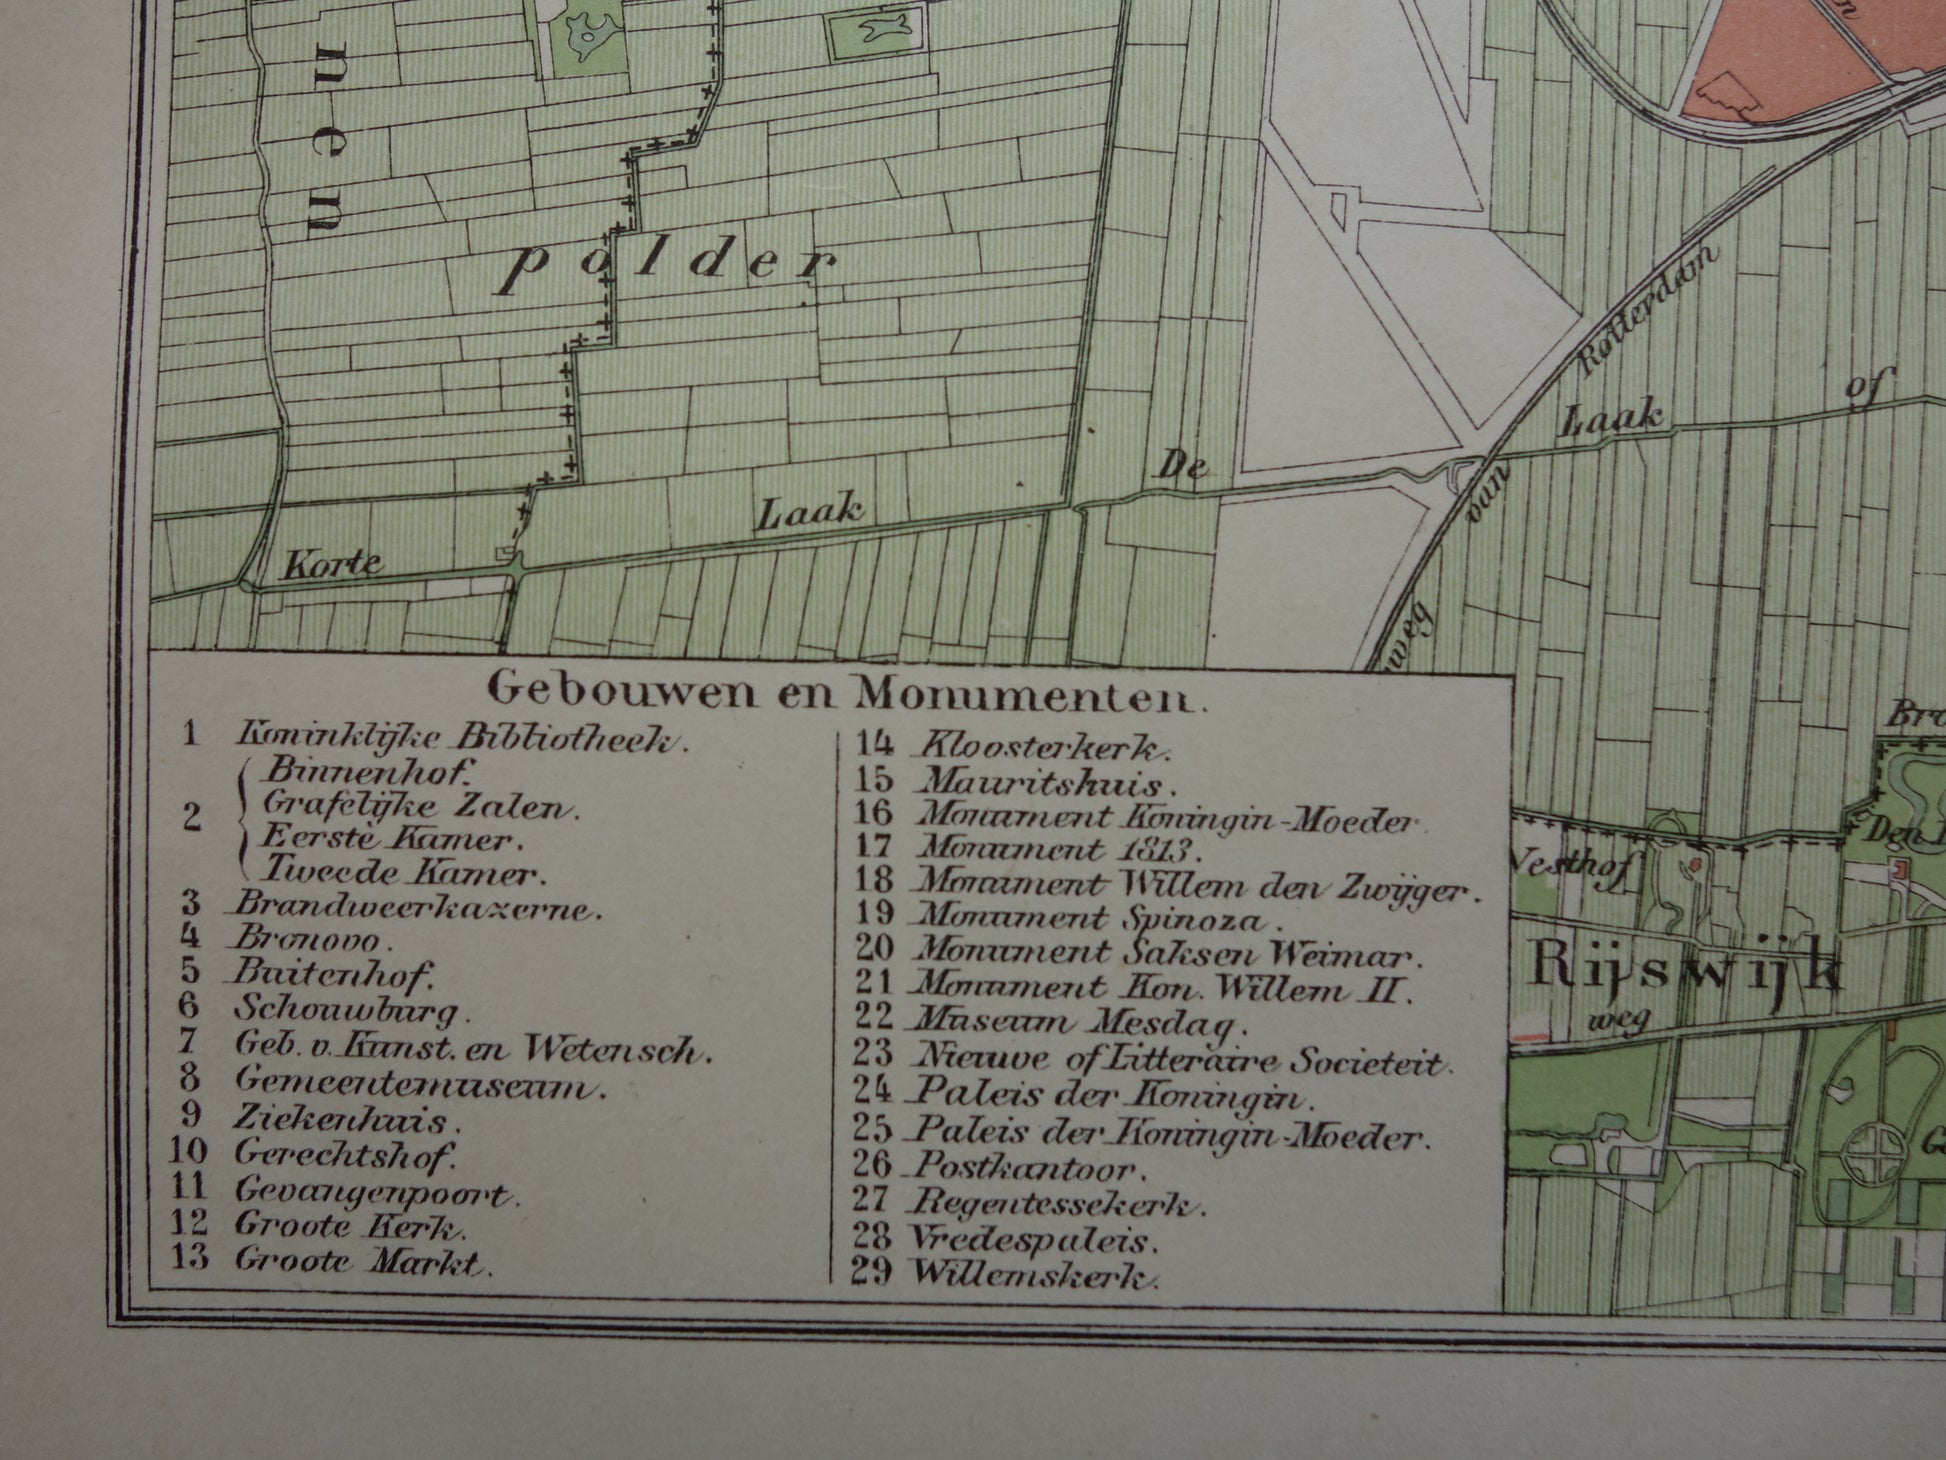 nen
polder
Rotterdam
of
Laak
De
van
Laak
Korte
weg
Gebouwen en Monumenten.
1 Koninklijke Bibliotheek.
2 Binnenhof.
Grafelijke Zalen.
Eerste Kamer.
Tweede Kamer.
3 Brandweerkazerne.
4 Bronovo.
5 Buitenhof.
6 Schouwburg.
7 Geb. v. Kunst. en Wetensch.
8 Gemeentemuseum.
9 Ziekenhuis.
10 Gerechtshof.
11 Gevangenpoort.
12 Groote Kerk.
13 Groote Markt.
14 Kloosterkerk.
15 Mauritshuis.
16 Monument Koningin-Moeder.
17 Monument 1813.
18 Monument Willem den Zwijger.
19 Monument Spinoza.
20 Monument Saksen Weimar.
21 Monument Kon. Willem II.
22 Museum Mesdag.
23 Nieuwe of Litteraire Societeit.
24 Paleis der Koningin.
25 Paleis der Koningin-Moeder.
26 Postkantoor.
27 Regentessekerk.
28 Vredespaleis.
29 Willemskerk.
Bro
Den
Vesthof
Rijswijk
weg